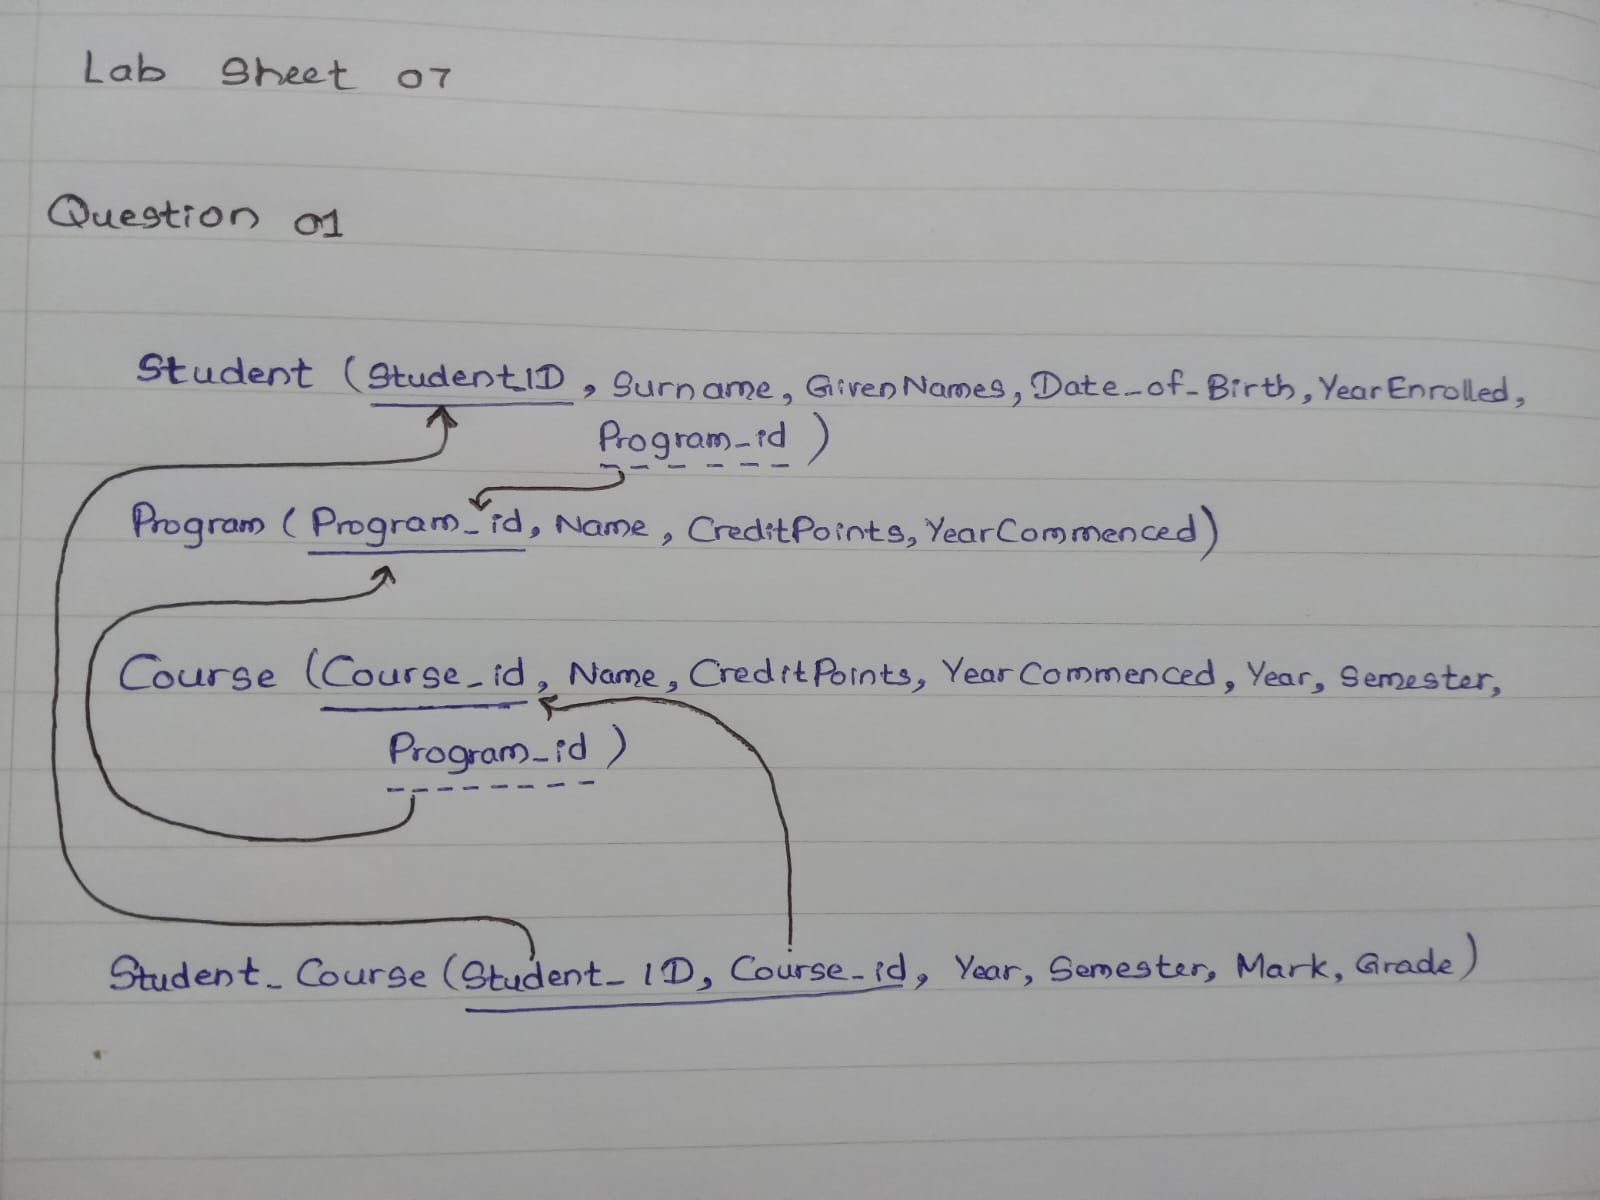 Lab Sheet 07
Question 01
Student (StudentID, Surname, GivenNames, Date_of_Birth, YearEnrolled,
Program_id)
Program (Program_id, Name, CreditPoints, YearCommenced)
Course (Course_id, Name, CreditPoints, YearCommenced, Year, Semester,
Program_id)
Student_Course (Student_ID, Course_id, Year, Semester, Mark, Grade)